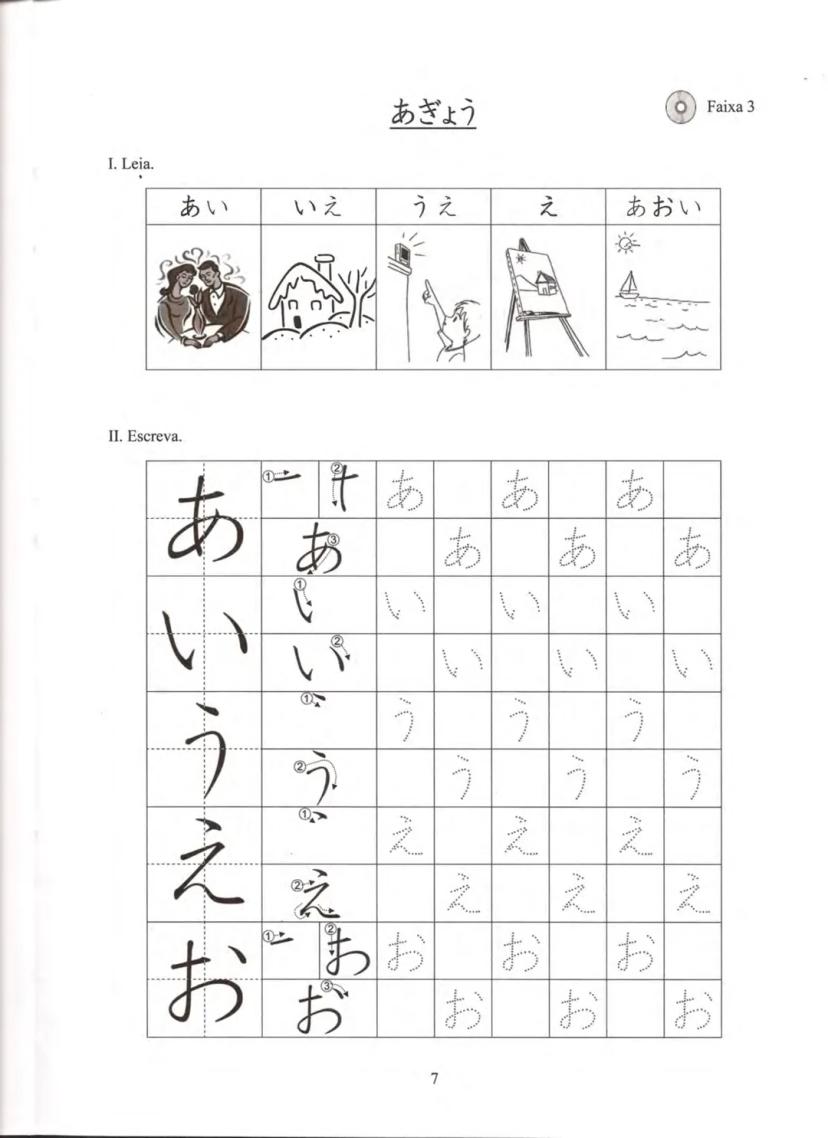 あぎょう
Faixa 3
I. Leia.
あい いえ うえ え あおい
II. Escreva.
あ ① ② あ あ あ
あ ③ あ あ あ
い ① い い い
い ② い い い
う ① う う う
う ② う う う
え ① え え え
え ② え え え
お ① お ② お お お
お ③ お お お
7